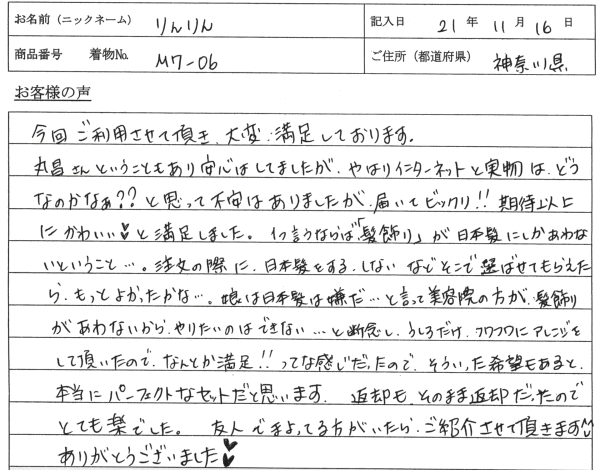 お名前(ニックネーム) りんりん 記入日 21年 11月 16日
商品番号 着物No. M7-06 ご住所(都道府県) 神奈川県
お客様の声
今回ご利用させて頂き、大変、満足しております。
丸昌さんということもあり安心はしてましたが、やはりインターネットと実物は、どう
なのかなぁ??と思って不安はありましたが、届いてビックリ!!期待以上
にかわいい♥と満足しました。1つ言うならば「髪飾り」が日本髪にしかあわな
いということ…。注文の際に、日本髪をする、しないなどそこで選ばせてもらえた
ら、もっとよかったかな…。娘は日本髪は嫌だ…と言って美容院の方が、髪飾り
があわないから、やりたいのはできない…と断念し、うしろだけ、フワフワにアレンジを
して頂いたので、なんとか満足!!ってな感じだったので、そういった希望もあると、
本当にパーフェクトなセットだと思います。返却も、そのまま返却だったので
とても楽でした。友人でまよってる方がいたら、ご紹介させて頂きます♡
ありがとうございました♥